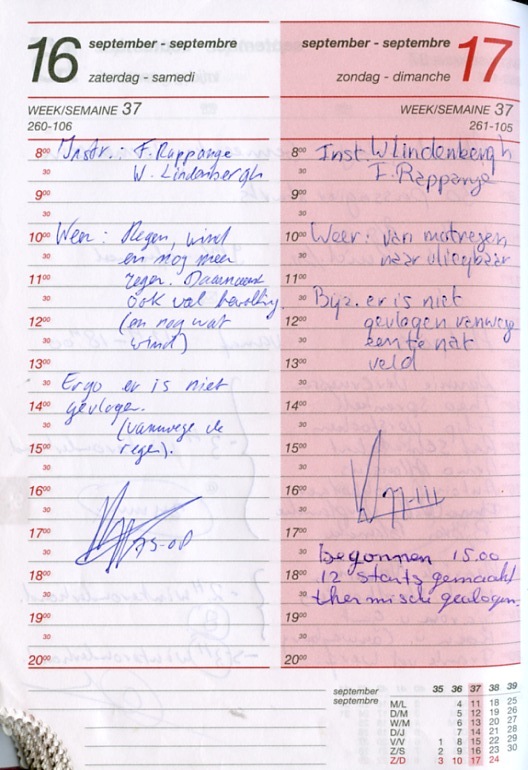 16
september - septembre
zaterdag - samedi
WEEK/SEMAINE 37
260-106
8⁰⁰ Instr.: F. Rappange
30 W. Lindenbergh
9⁰⁰
30
10⁰⁰ Weer: Regen, wind
30 en nog meer
11⁰⁰ regen. Daarnaast
30 ook wel bevolking.
12⁰⁰ (en nog wat
30 wind)
13⁰⁰
30 Ergo er is niet
14⁰⁰ gevlogen.
30 (vanwege de
15⁰⁰ regen).
30
16⁰⁰
30
17⁰⁰
30
18⁰⁰
30
19⁰⁰
30
20⁰⁰
september - septembre
zondag - dimanche
17
WEEK/SEMAINE 37
261-105
8⁰⁰ Inst. W Lindenbergh
30 F. Rappange
9⁰⁰
30
10⁰⁰ Weer: van motregen
30 naar vliegbaar
11⁰⁰
30 Bijz. er is niet
12⁰⁰ gevlogen vanwege
30 een te nat
13⁰⁰ veld
30
14⁰⁰
30
15⁰⁰
30
16⁰⁰
30
17⁰⁰
30 begonnen 15.00
18⁰⁰ 12 starts gemaakt
30 thermische gevlogen.
19⁰⁰
30
20⁰⁰
september
septembre
35 36 37 38 39
M/L 4 11 18 25
D/M 5 12 19 26
W/M 6 13 20 27
D/J 7 14 21 28
V/V 1 8 15 22 29
Z/S 2 9 16 23 30
Z/D 3 10 17 24